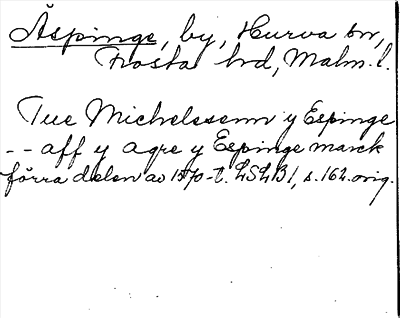 Äspinge, by, Hurva sn,
Frosta hd, Malm. l.
Tue Michelssenn y Espinge
-- aff y agre y Espinge marck
förra delen av 1570-t. LSLB1, s. 162. orig.